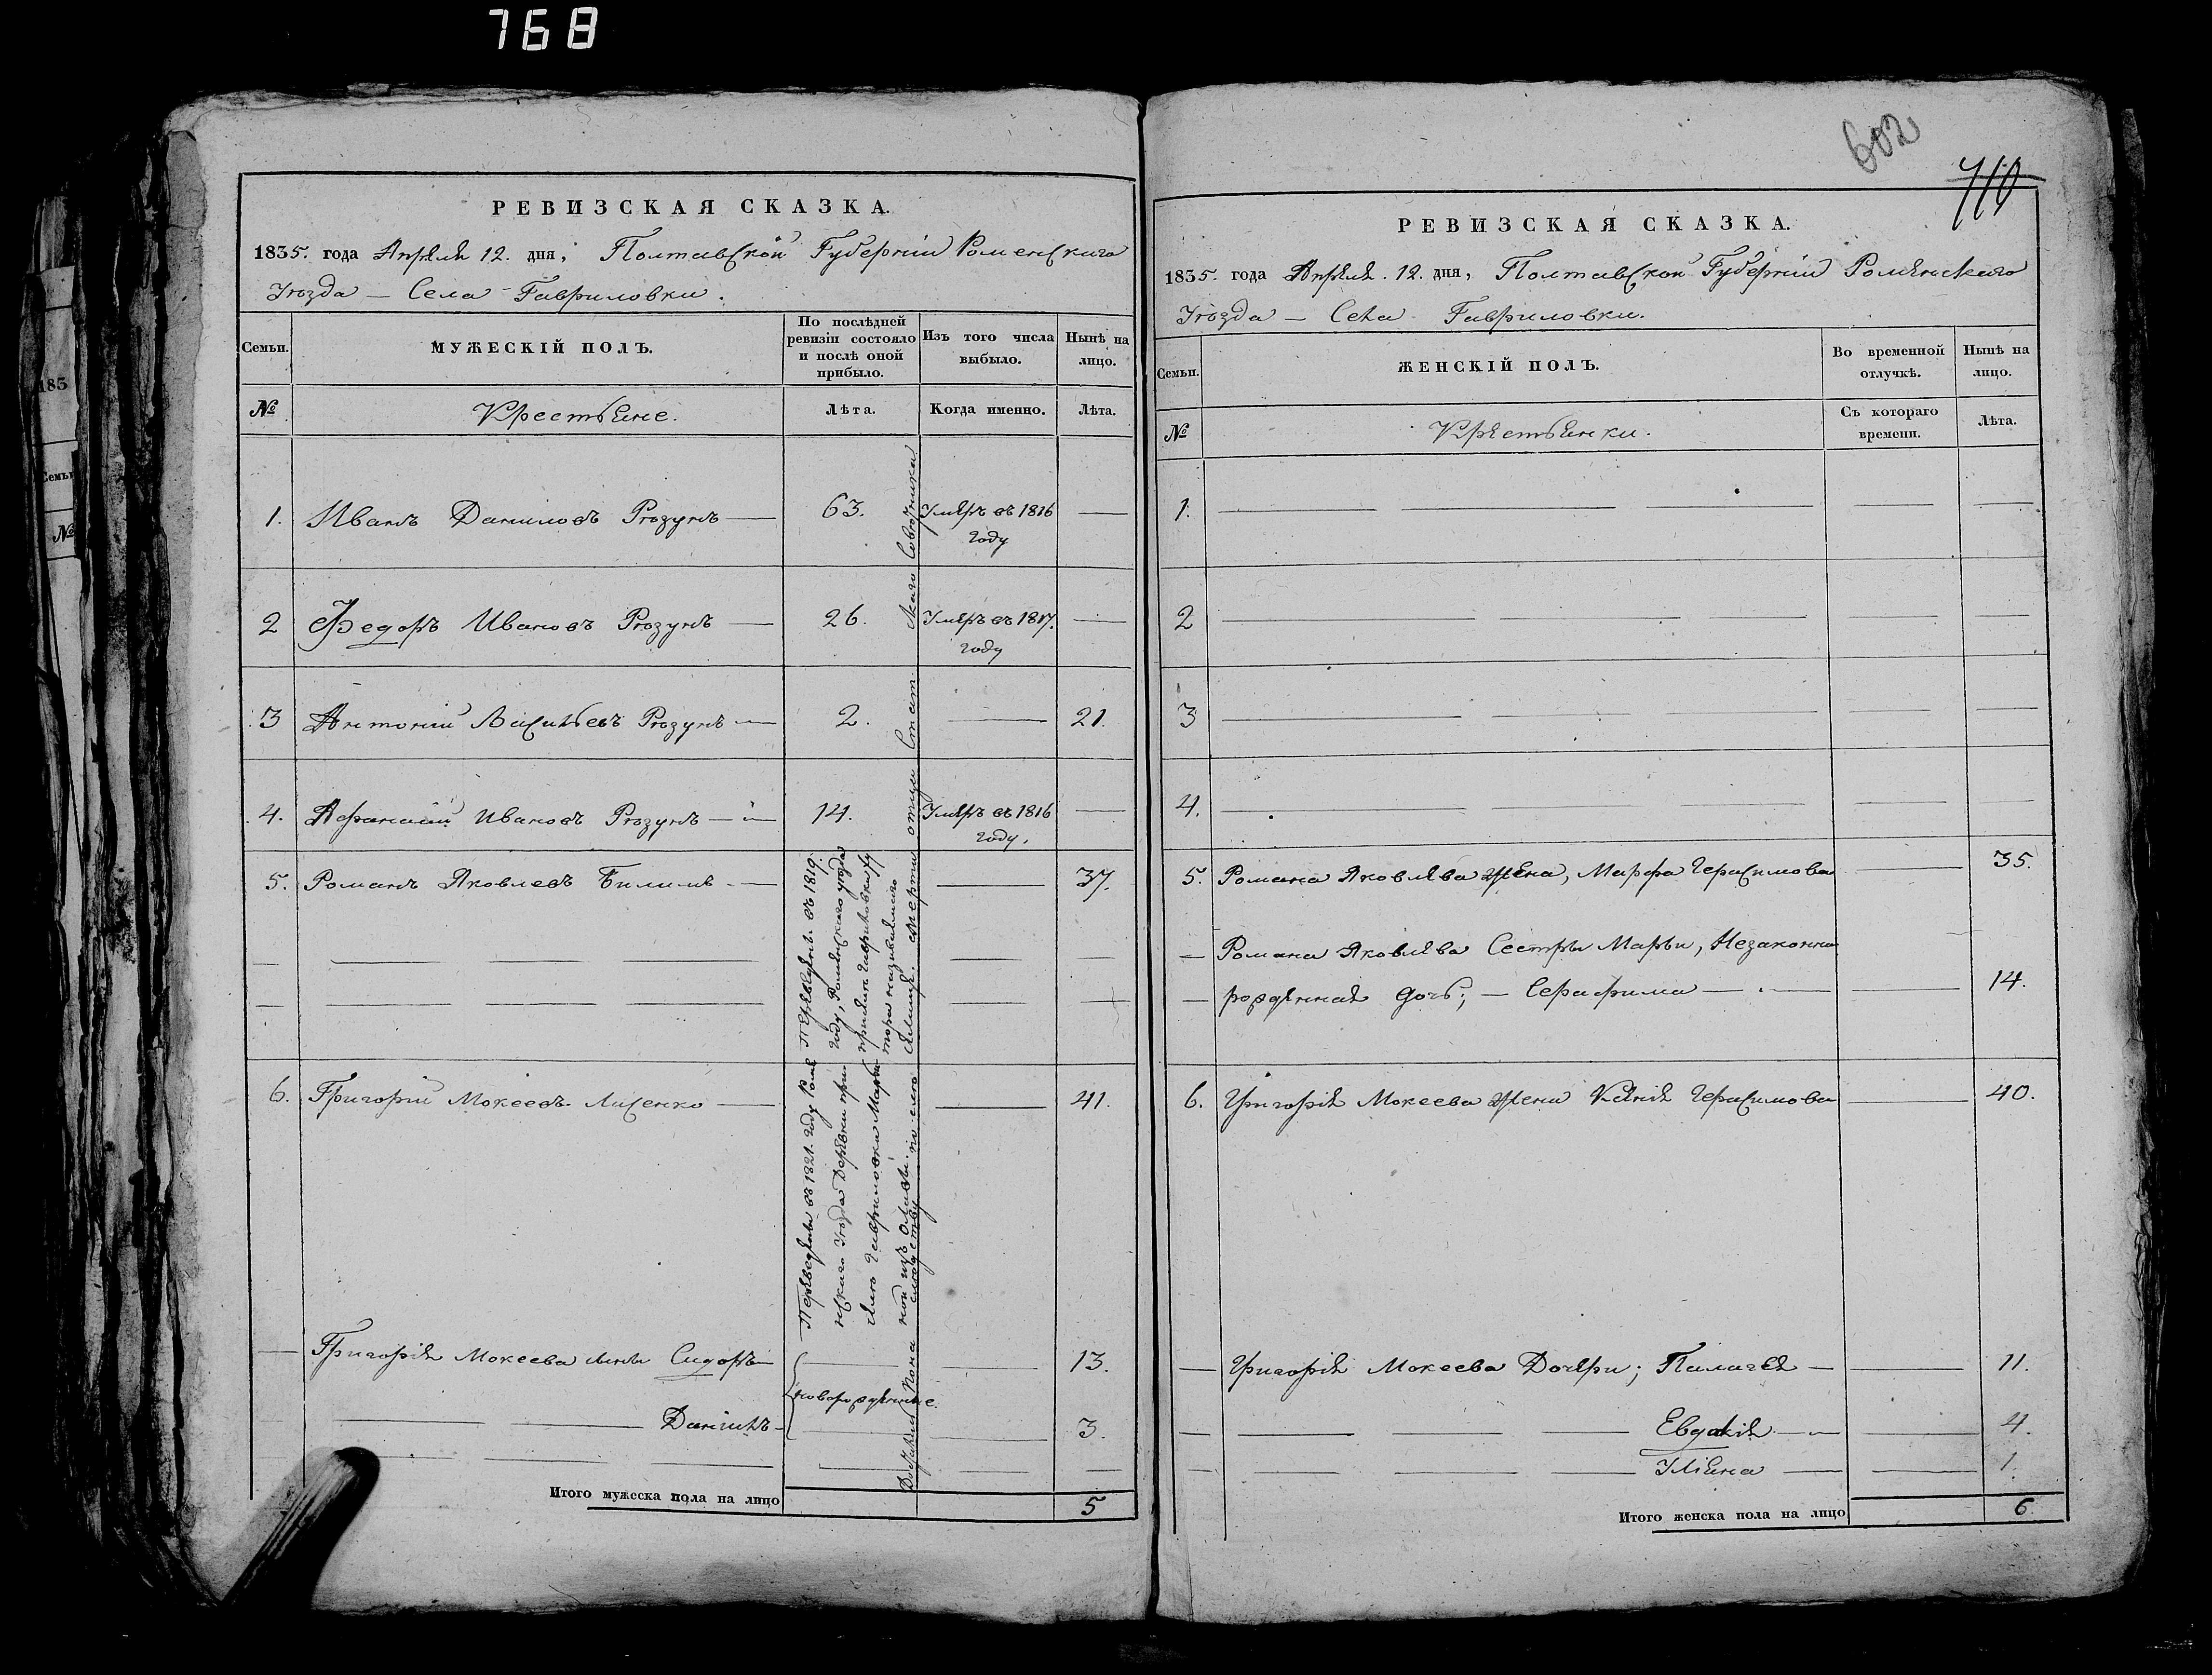 768
602
710
РЕВИЗСКАЯ СКАЗКА.
1835. года Апреля 12. дня, Полтавской Губернии Роменскаго
Уезда — Села Гавриловки.
Семьи.
МУЖЕСКІЙ ПОЛЪ.
По послѣдней ревизіи состояло и послѣ оной прибыло.
Изъ того числа выбыло.
Нынѣ на лицо.
№
Крестьяне.
Лѣта.
Когда именно.
Лѣта.
1. Иванъ Даниловъ Рѣзунъ — 63. Умеръ въ 1816 —
году
2 Федоръ Ивановъ Рѣзунъ — 26. Умеръ въ 1817. —
году
3 Антоній Васильевъ Рѣзунъ — 2. — 21.
4. Афанасій Ивановъ Рѣзунъ — 14. Умеръ въ 1816 —
году.
5. Романъ Яковлевъ Билимъ — — 37.
Переведенъ въ 1819.
году, Роменскаго уезда
6. Григорій Мокеевъ Лисенко — — 41.
Переведены въ 1821. году Роме
нскаго Уезда Деревни при
Григорія Мокеева сыны Сидоръ — — 13.
новорожденные
Данiилъ — — 3.
Итого мужеска пола на лицо 5
РЕВИЗСКАЯ СКАЗКА.
1835. года Апреля 12. дня, Полтавской Губерніи Роменскаго
Уезда — Села Гавриловки.
Семьи.
ЖЕНСКІЙ ПОЛЪ.
Во временной отлучкѣ.
Нынѣ на лицо.
№
Крестьянки.
Съ котораго времени.
Лѣта.
1.
2
3
4.
5. Романа Яковлева жена, Марфа Герасимова — 35.
— Романа Яковлева Сестры Марьи, Незаконно
— рожденная дочь; — Серафима — — 14.
6. Григорія Мокеева жена Ксенія Герасимова — 40.
— Григорія Мокеева Дочери; Палагея — — 11.
Евдокія — — 4.
Уліяна — — 1.
Итого женска пола на лицо 6.